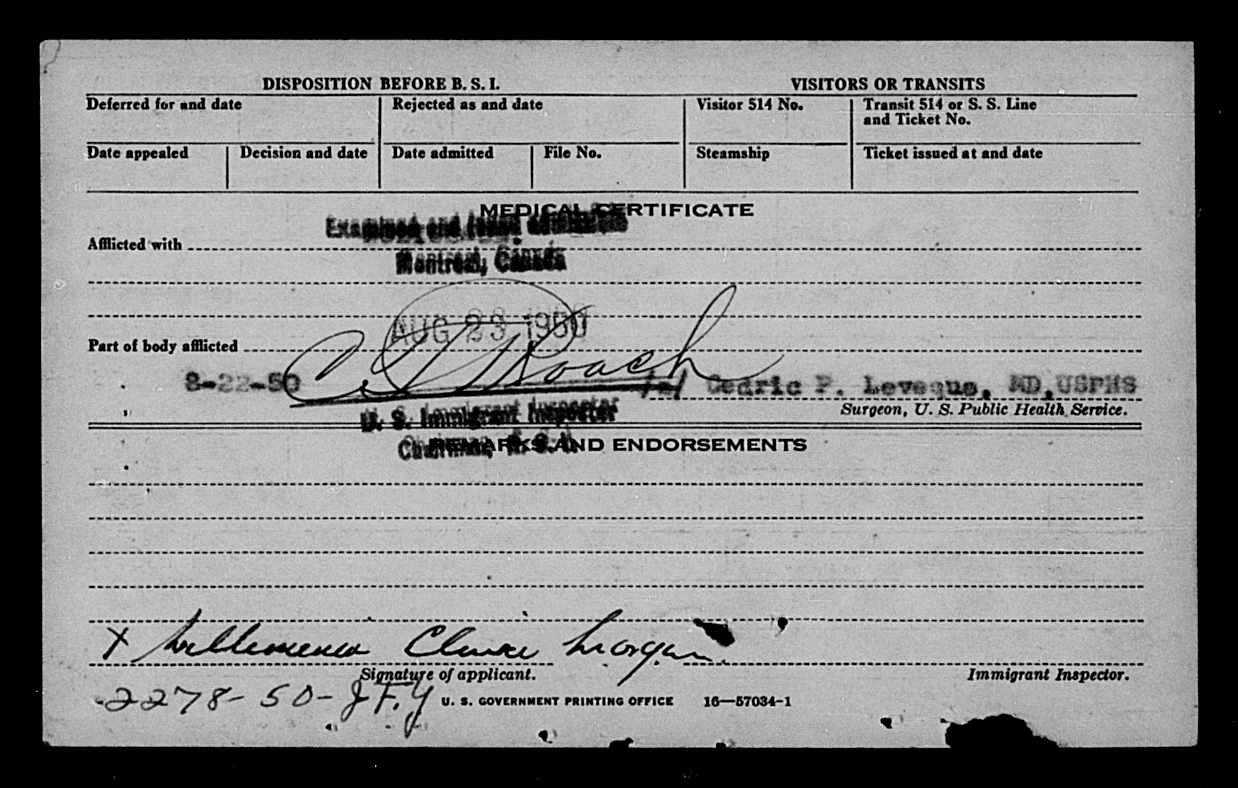 DISPOSITION BEFORE B. S. I.
VISITORS OR TRANSITS
Deferred for and date
Rejected as and date
Visitor 514 No.
Transit 514 or S. S. Line
and Ticket No.
Date appealed
Decision and date
Date admitted
File No.
Steamship
Ticket issued at and date
MEDICAL CERTIFICATE
Examined and found
Afflicted with
Montreal, Canada
AUG 23 1950
Part of body afflicted
Roach
8-22-50
/s/ Cedric P. Leveque, MD, USPHS
Surgeon, U. S. Public Health Service.
U. S. Immigrant Inspector
Chairman, B. S. I.
REMARKS AND ENDORSEMENTS
X Morgan
Signature of applicant.
Immigrant Inspector.
2278-50-J.F.Y
U. S. GOVERNMENT PRINTING OFFICE 16—57034-1